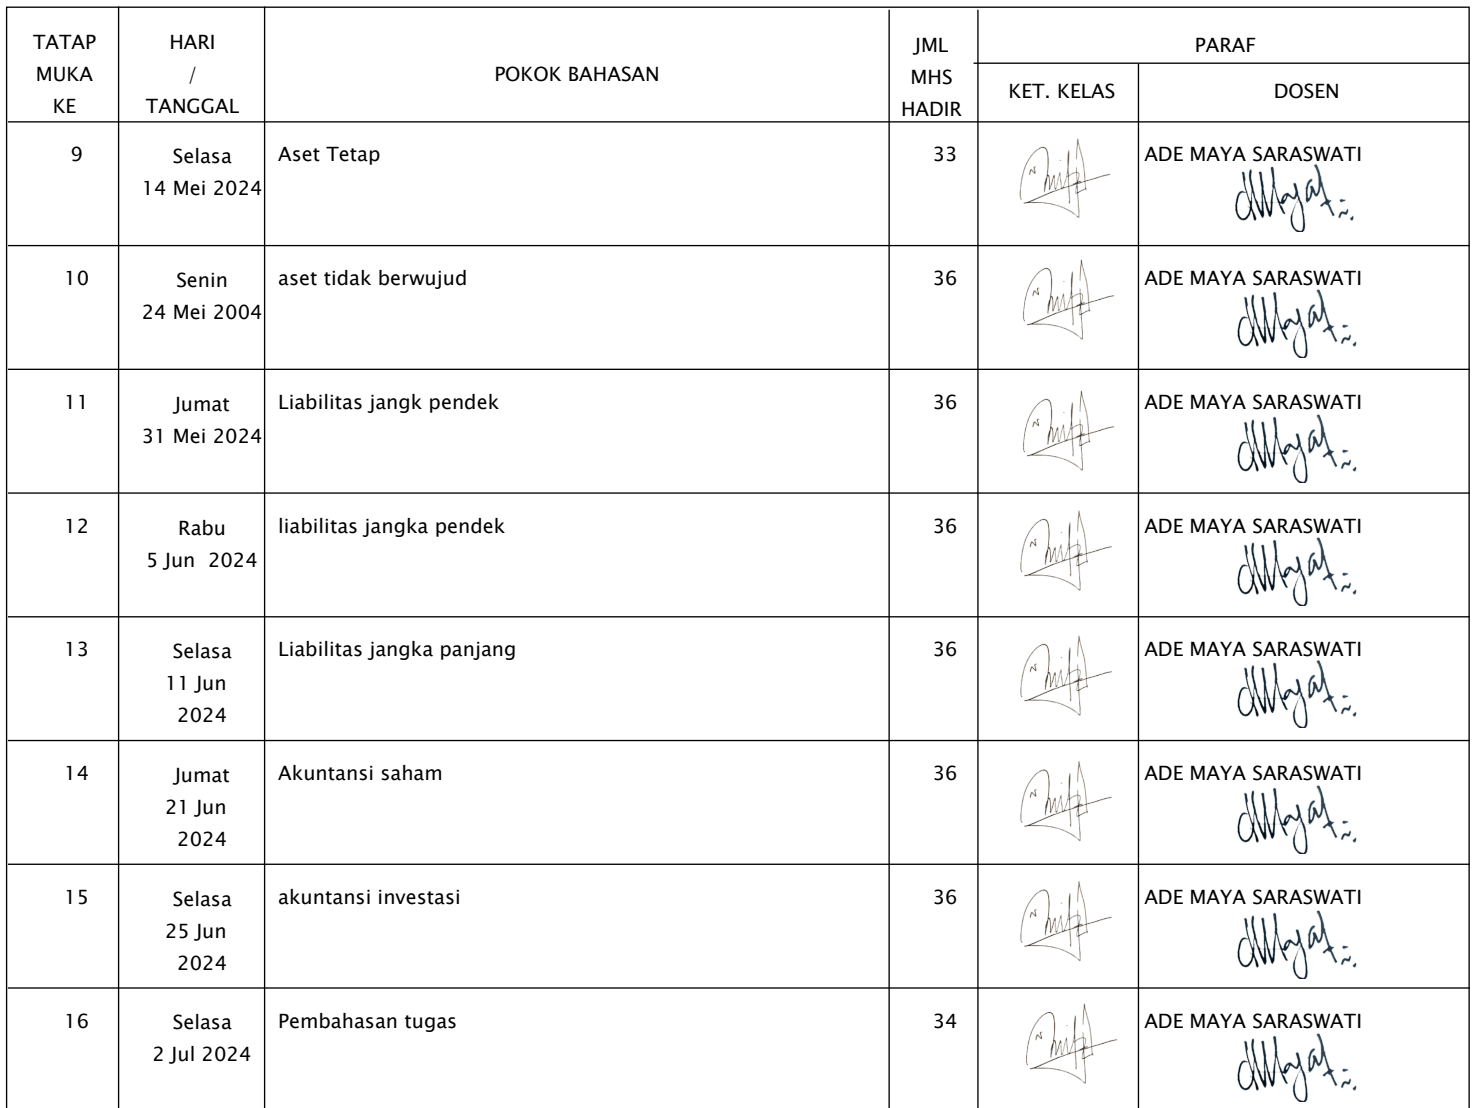 TATAP
MUKA
KE
HARI
/
TANGGAL
POKOK BAHASAN
JML
MHS
HADIR
PARAF
KET. KELAS
DOSEN
9
Selasa
14 Mei 2024
Aset Tetap
33
ADE MAYA SARASWATI
10
Senin
24 Mei 2004
aset tidak berwujud
36
ADE MAYA SARASWATI
11
Jumat
31 Mei 2024
Liabilitas jangk pendek
36
ADE MAYA SARASWATI
12
Rabu
5 Jun 2024
liabilitas jangka pendek
36
ADE MAYA SARASWATI
13
Selasa
11 Jun
2024
Liabilitas jangka panjang
36
ADE MAYA SARASWATI
14
Jumat
21 Jun
2024
Akuntansi saham
36
ADE MAYA SARASWATI
15
Selasa
25 Jun
2024
akuntansi investasi
36
ADE MAYA SARASWATI
16
Selasa
2 Jul 2024
Pembahasan tugas
34
ADE MAYA SARASWATI